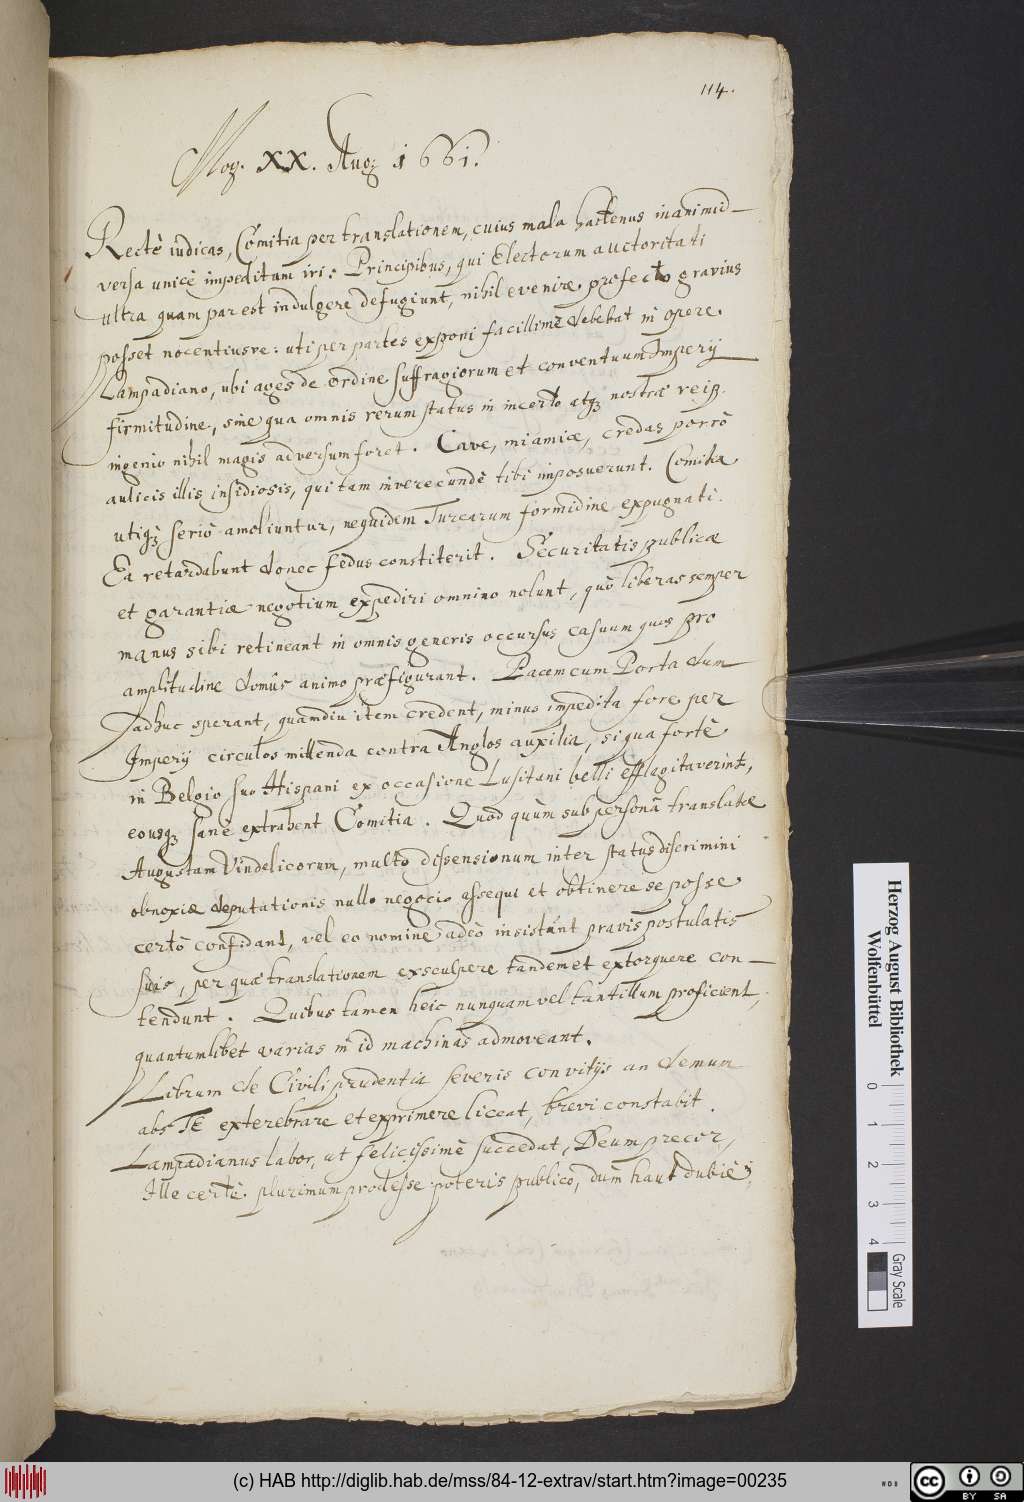 114.
Mog. XX. Aug. 1661.
Rectè iudicas, Comitia per translationem, cuius mala hactenus inanimid-
versa unicè impeditum iri. Principibus, qui Electorum auctoritati
ultra quam par est indulgere defugiunt, nihil evenire profecto gravius
posset nocentiusve: uti per partes exponi facillimè debebat in opere
Lampadiano, ubi ages de ordine suffragiorum et conventuum Imperij
firmitudine, sine qua omnis rerum status in incerto atq; nostræ reip.
ingenio nihil magis adversum foret. Cave, mi amice, credas porrò
aulicis illis insidiosis, qui tam inverecundè tibi imposuerunt. Comitia
utiq; seriò amoliuntur, nequidem Turcarum formidine expugnati.
Ea retardabunt donec fędus constiterit. Securitatis publicæ
et garantiæ negotium expediri omnino nolunt, quò liberas semper
manus sibi retineant in omnis generis occursus casuum quos pro
amplitudine domûs animo præfigurant. Pacem cum Porta dum
adhuc sperant, quamdiu item credent, minus impedita fore per
Imperij circulos mittenda contra Anglos auxilia, si qua fortè
in Belgio suo Hispani ex occasione Lusitani belli efflagitaverint,
eousq; sanè extrahent Comitia. Quod quùm sub personâ translatæ
Augustam Vindelicorum, multò dissensionum inter status discrimini
obnoxiæ deputationis nullo negocio assequi et obtinere se posse
certò confidant, vel eo nomine adeò insistunt pravis postulatis
suis, per quæ translationem exsculpere tandem et extorquere con-
tendunt. Quibus tamen heic nunquam vel tantillum proficient,
quantumlibet varias in id machinas admoveant.
Librum de Civili prudentia severis convitijs an demum
abs TE exterebrare et exprimere liceat, brevi constabit.
Lampadianus labor, ut felicissimè succedat, Deum precor,
Ille certè plurimum prodesse poteris publico, dum haut dubiè
Herzog August Bibliothek
Wolfenbüttel
0 1 2 3 4
Gray Scale
(c) HAB http://diglib.hab.de/mss/84-12-extrav/start.htm?image=00235
cc BY SA